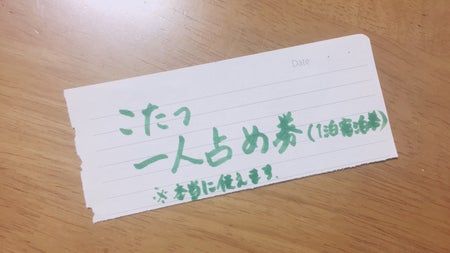 Date
こたつ
一人占め券(1泊宿泊券)
※本当に使えます。